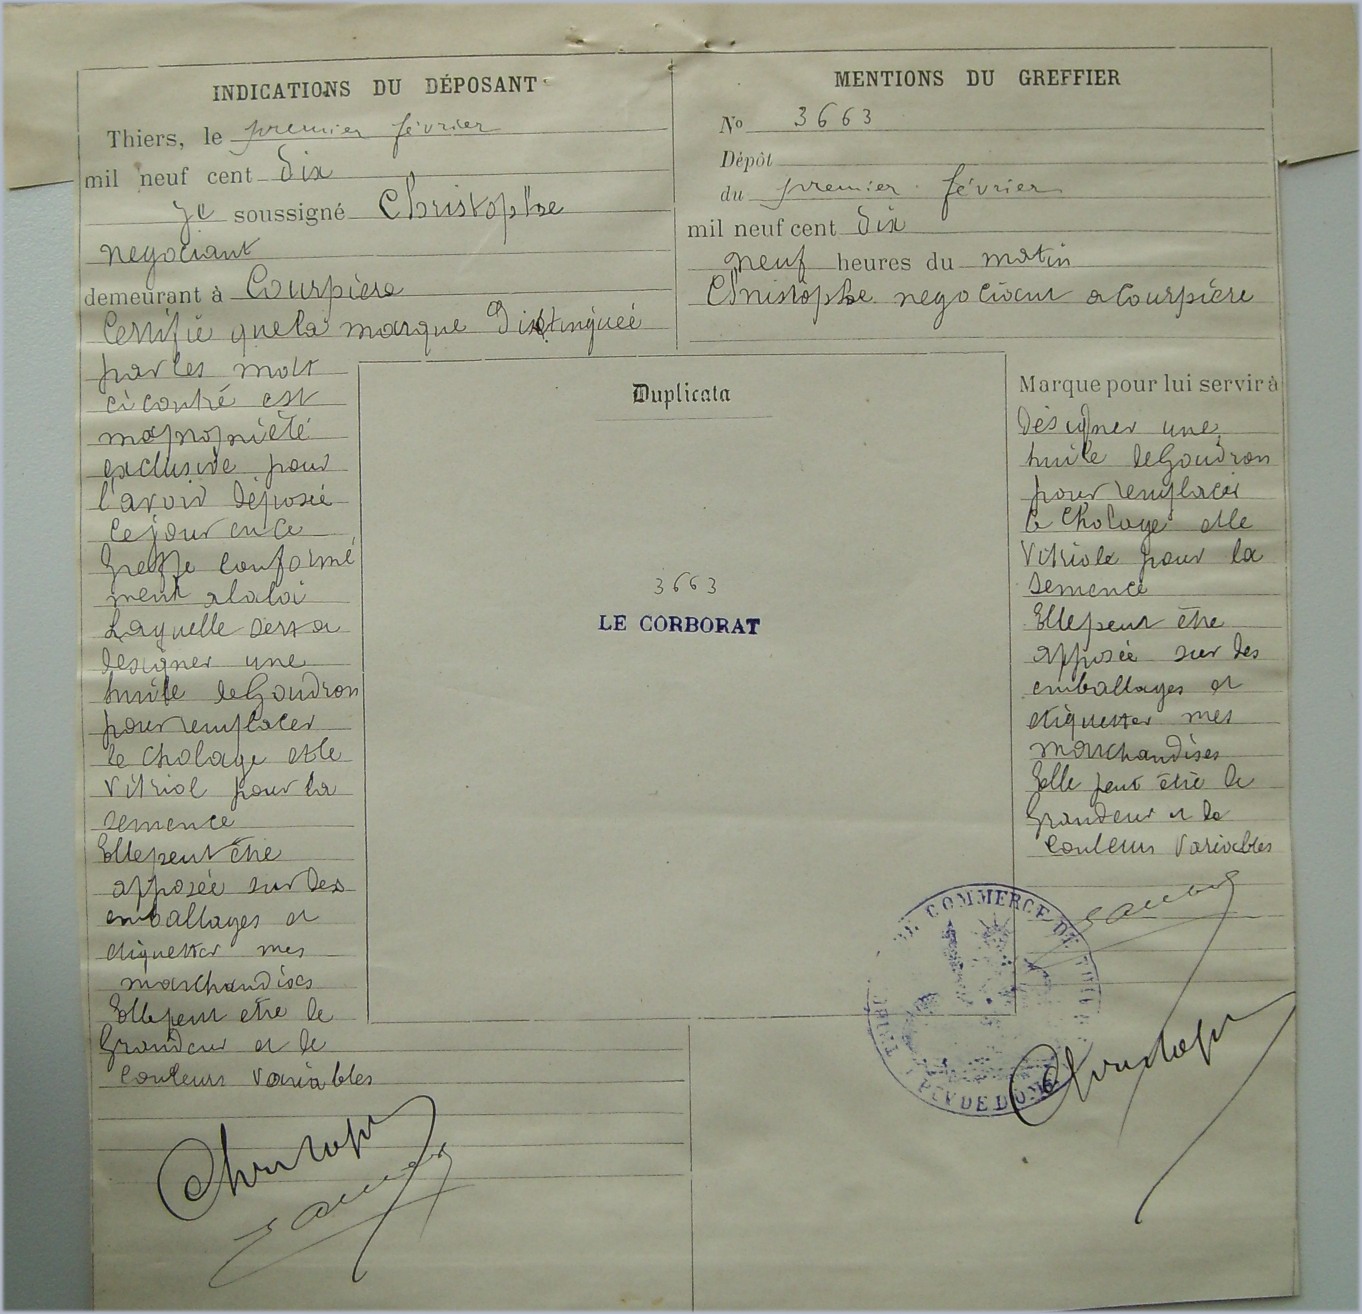 INDICATIONS DU DÉPOSANT
Thiers, le premier février
mil neuf cent dix
Je soussigné Christophe
negociant
demeurant à Courpière
Certifie que la marque distinguée
par les mots
ci contre est
ma propriété
exclusive pour
l'avoir déposée
ce jour en ce
Greffe conformé
ment a la loi
Laquelle sera
designer une
huile de Goudron
pour remplacer
le Cholage et le
Vitriol pour la
semence
Elle peut être
apposée sur des
emballages et
etiquetter mes
marchandises
Elle peut etre de
Grandeur et de
Couleurs Variables
Christophe
MENTIONS DU GREFFIER
No 3663
Dépôt
du premier février
mil neuf cent dix
neuf heures du matin
Christophe negociant a Courpière
Duplicata
3663
LE CORBORAT
Marque pour lui servir à
désigner une
huile de Goudron
pour remplacer
le Cholage et le
Vitriole pour la
semence
Elle peut être
apposée sur des
emballages et
etiquetter mes
marchandises
Elle peut être de
Grandeur et de
Couleurs Variables
DE COMMERCE DE
PUY DE DOME
Christophe